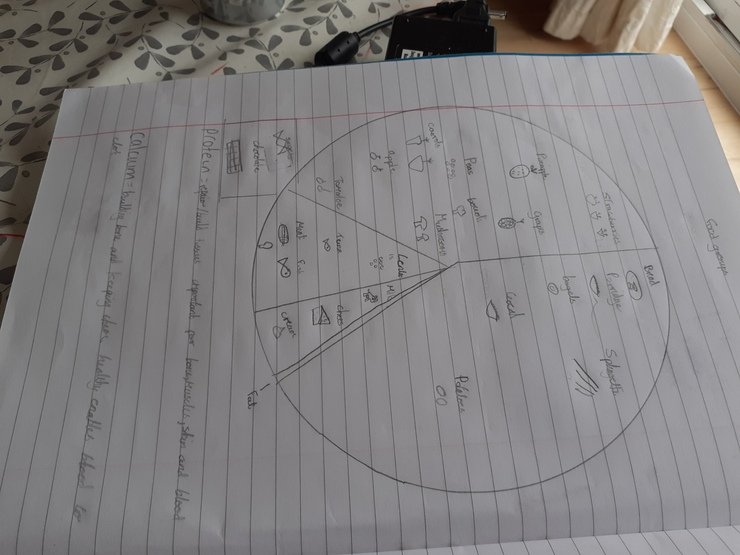 Food groups
Bread
Strawberries
Porridge
Sphagetti
bagels
Pineapple
Grape
Cereal
Peas
brocoli
Potatoes
Carrots
Mushroom
apple
Lentils
Milk
Tomatoe
Tuna
Cheese
Meat
Fish
Cream
Fat
chocolate
Protein = build tissue important for bones, muscles, skin and blood
Calcium = healthy bone and keeping them healthy enables blood to
clot